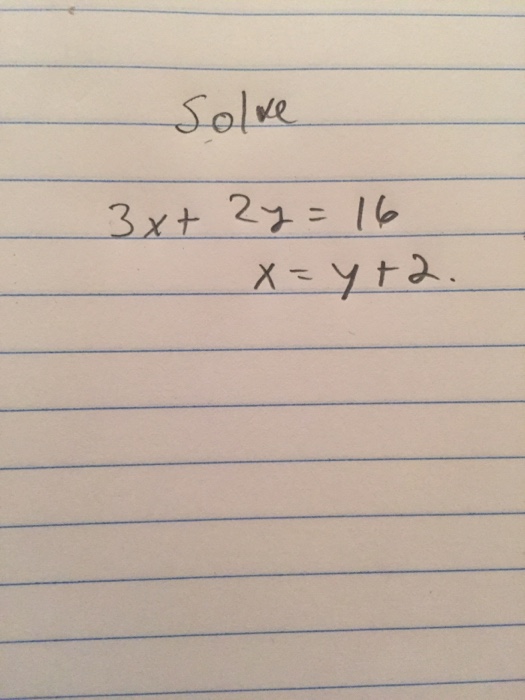 Solve
3x+ 2y = 16
x = y + 2.